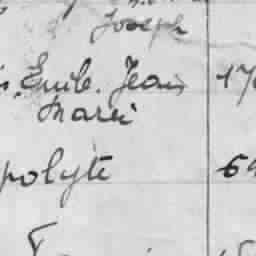 Joseph
Emile. Jean 17
Marie
polyte 64